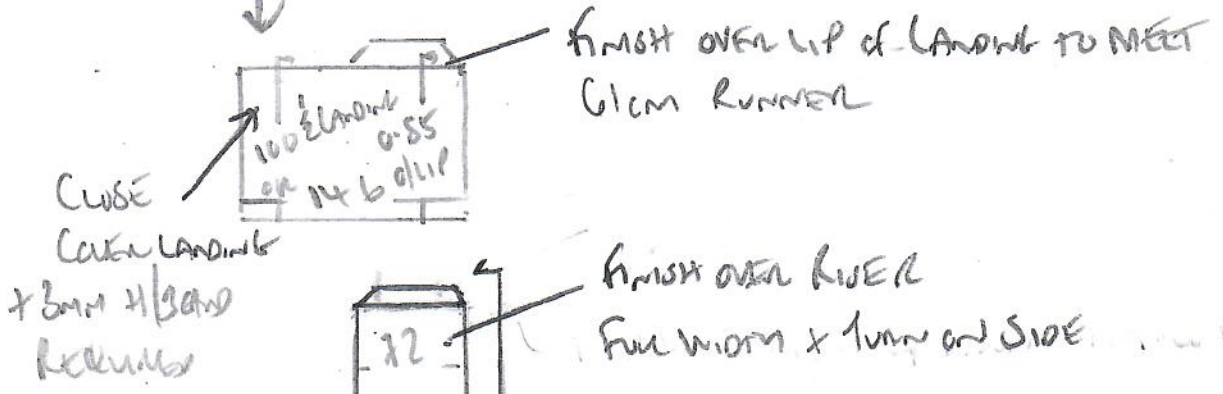 FINISH OVER LIP of LANDING TO MEET
61cm RUNNER
½ LANDING
100 0.55
OR 14 b o/LIP
CLOSE
COVER LANDING
+ 3mm H/BOARD
REQUIRED
FINISH OVER RISER
FULL WIDTH x TURN ON SIDE
x2